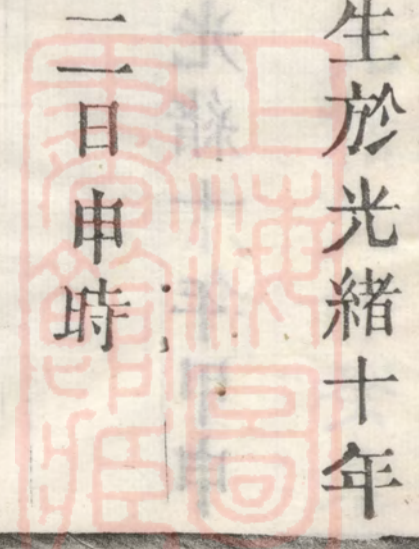 生於光緒十年
二日申時